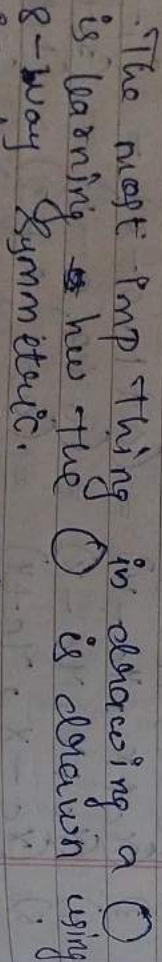 The most imp thing in drawing a ◯
is learning how the ◯ is drawn using
8-way Symmetric.